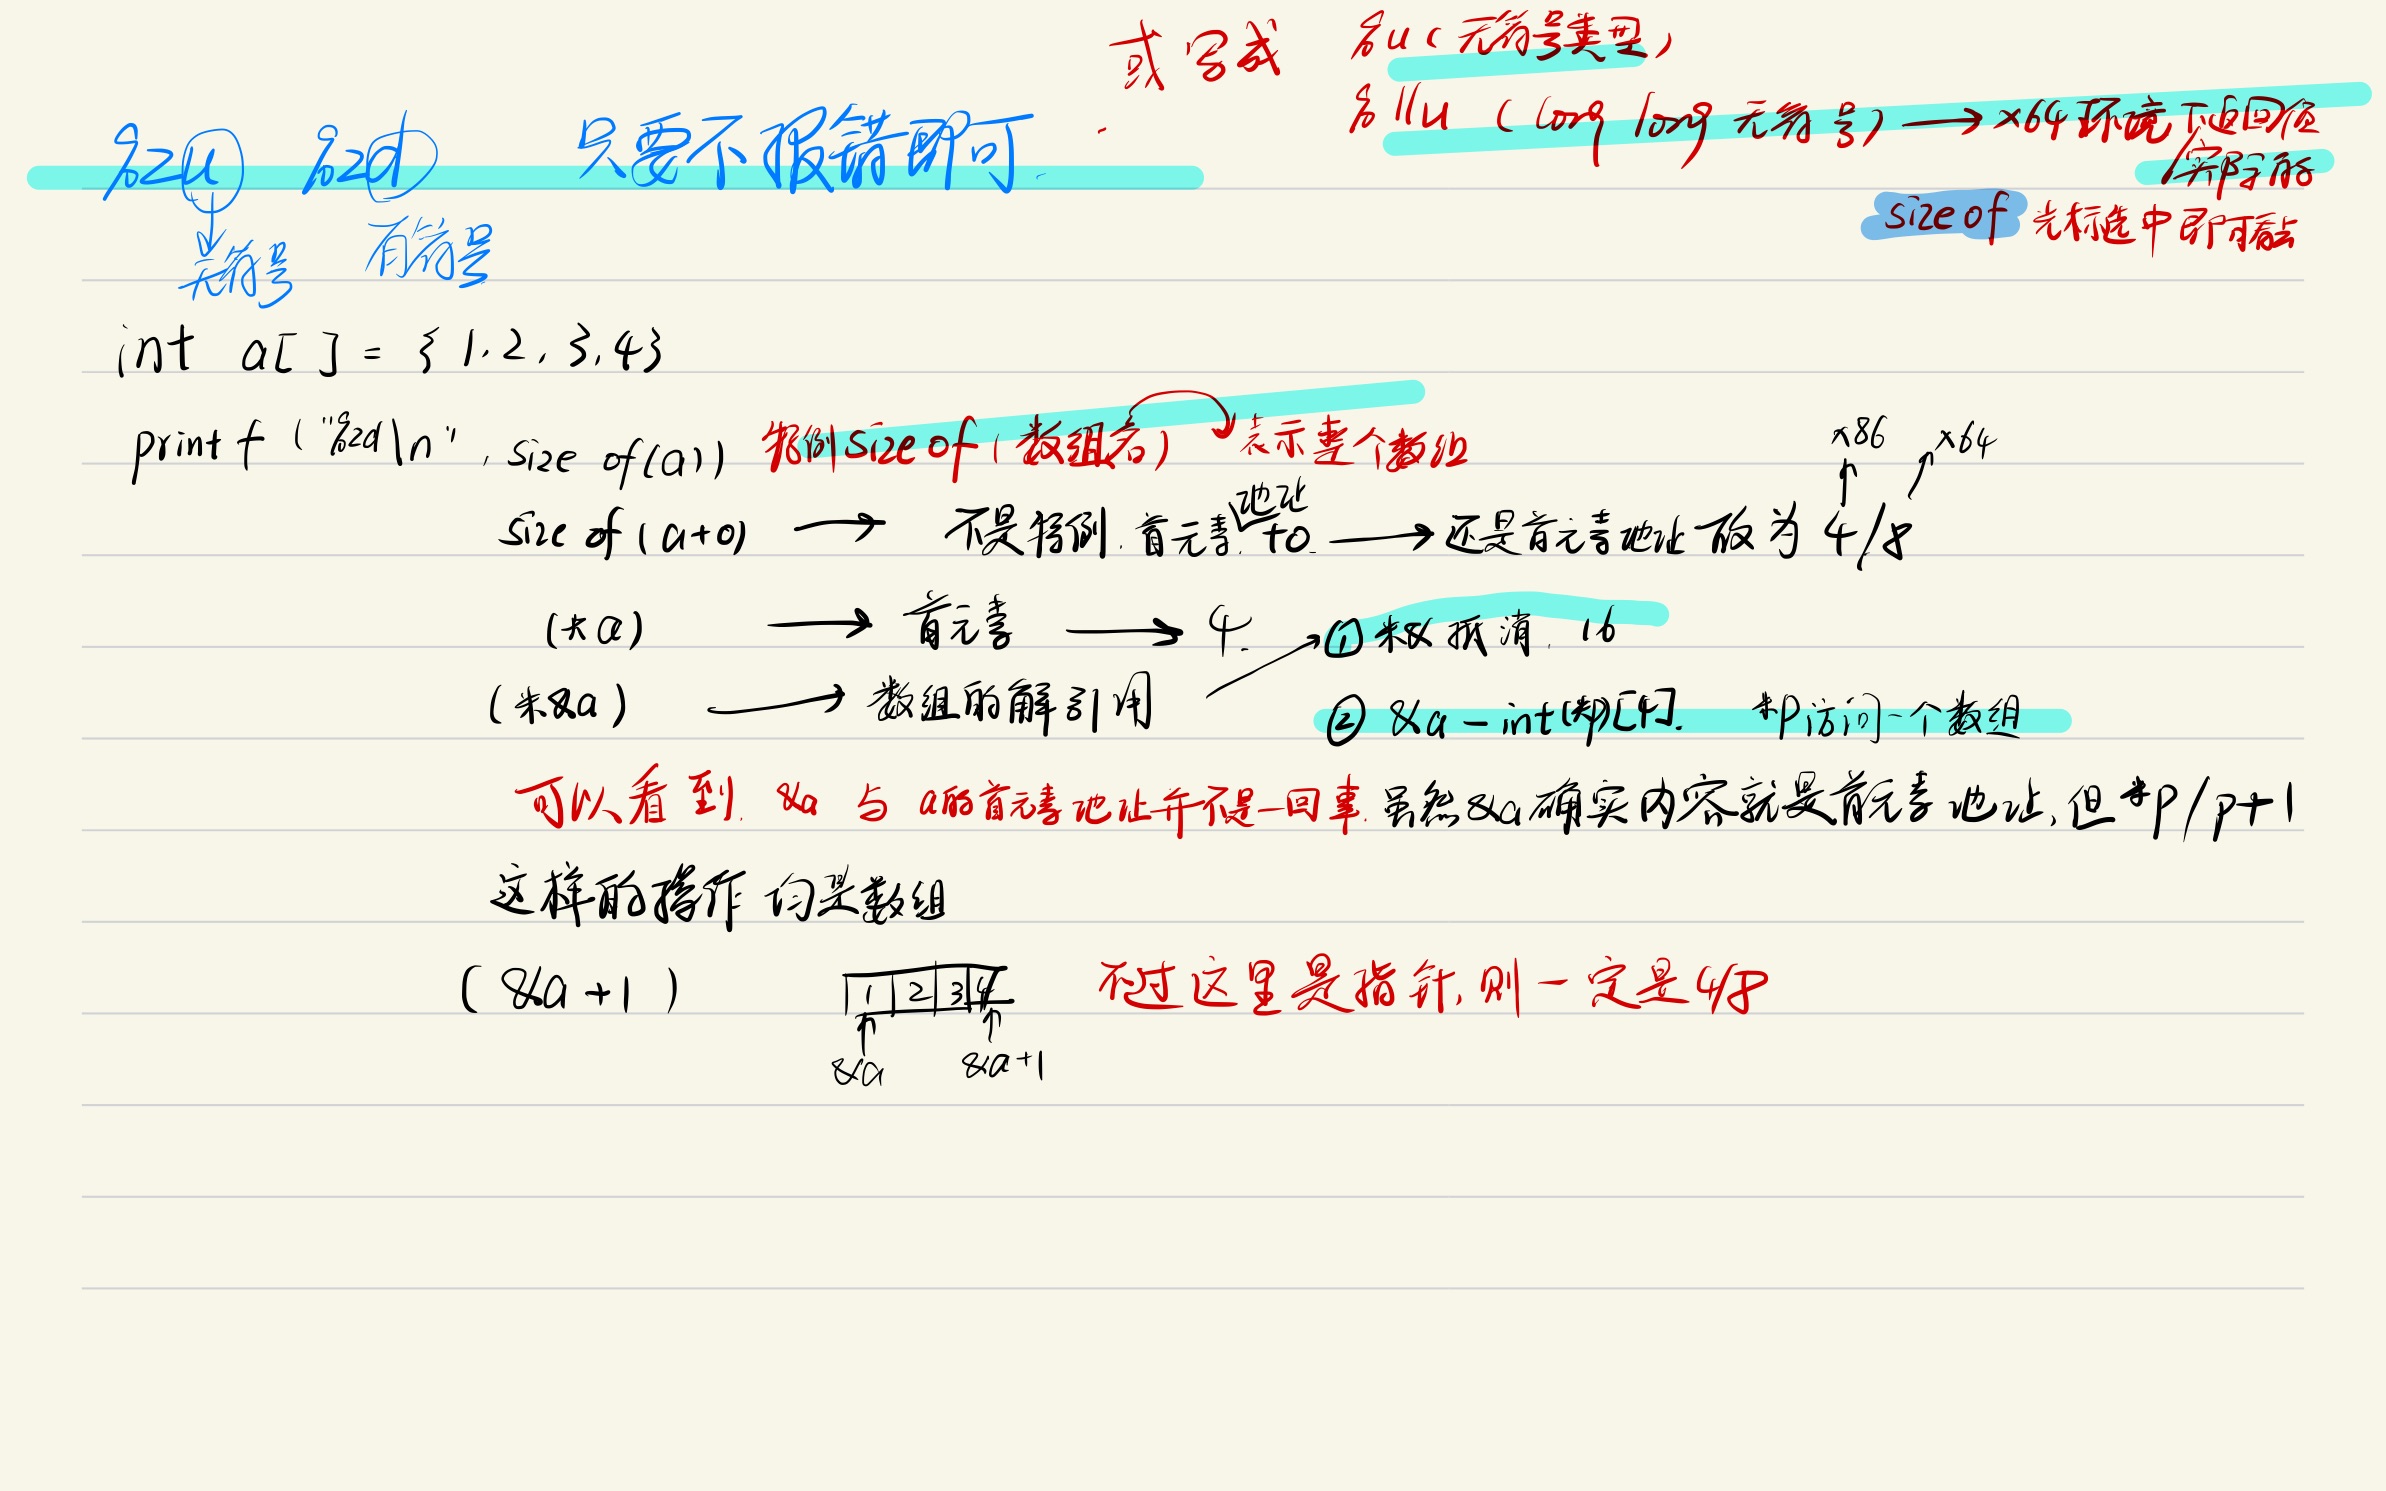 或写成 %u（无符号类型）
%llu （long long 无符号）→ x64环境下返回值
实际的
%zu %zd 只要不报错即可.
sizeof 光标选中即可看
无符号 有符号
int a[ ] = {1,2,3,4}
printf ("%zd\n", sizeof(a)) 特例sizeof（数组名） 表示整个数组
x86 x64
地址
sizeof(a+0) → 不是特例.首元素.+0. → 还是首元素地址 故为 4/8
(*a) → 首元素 → 4. ① *& 抵消. 16
(*&a) → 数组的解引用 ② &a - int(*p)[4]. *p访问一个数组
可以看到. &a 与 a的首元素地址并不是一回事.虽然&a确实内容就是首元素地址,但*p/p+1
这样的操作 均是数组
(&a+1) 1 2 3 4 不过这里是指针,则一定是4/8
&a &a+1